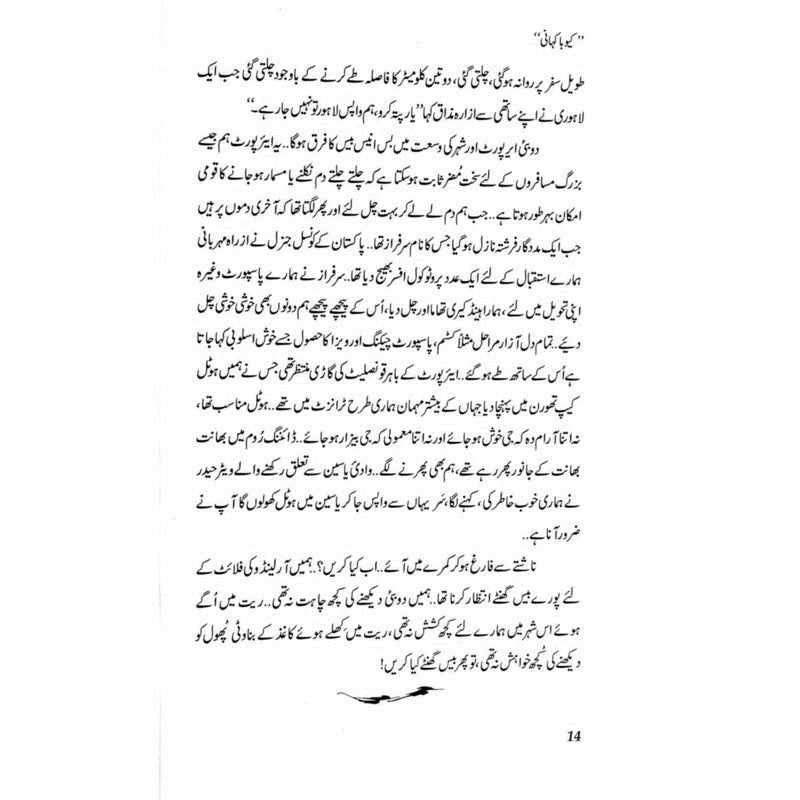 ’’کیوبا کہانی‘‘
طویل سفر پر روانہ ہو گئی، چلتی گئی، دو تین کلومیٹر کا فاصلہ طے کرنے کے باوجود چلتی گئی جب ایک
لاہوری نے اپنے ساتھی سے ازارہ مذاق کہا ’’یار پتہ کرو، ہم واپس لاہور تو نہیں جا رہے۔‘‘
دوبئی ایرپورٹ اور شہر کی وسعت میں بس انیس بیس کا فرق ہوگا.. یہ ایئرپورٹ ہم جیسے
بزرگ مسافروں کے لئے سخت مُضر ثابت ہو سکتا ہے کہ چلتے چلتے دم نکلنے یا مسمار ہو جانے کا قومی
امکان بہرطور ہوتا ہے.. جب ہم دم لے لے کر بہت چل لئے اور پھر لگتا تھا کہ آخری دموں پر ہیں
جب ایک مددگار فرشتہ نازل ہو گیا جس کا نام سرفراز تھا.. پاکستان کے کونسل جنرل نے ازراہ مہربانی
ہمارے استقبال کے لئے ایک عدد پروٹوکول افسر بھیج دیا تھا.. سرفراز نے ہمارے پاسپورٹ وغیرہ
اپنی تحویل میں لئے، ہمارا ہینڈ کیری تھاما اور چل دیا، اُس کے پیچھے پیچھے ہم دونوں بھی خوشی خوشی چل
دیئے.. تمام دل آزار مراحل مثلاً کسٹم، پاسپورٹ چیکنگ اور ویزا کا حصول جسے خوش اسلوبی کہا جاتا
ہے اُس کے ساتھ طے ہو گئے.. ایئرپورٹ کے باہر قونصلیٹ کی گاڑی منتظر تھی جس نے ہمیں ہوٹل
کیپ تھورن میں پہنچا دیا جہاں کے بیشتر مہمان ہماری طرح ٹرانزٹ میں تھے.. ہوٹل مناسب تھا،
نہ اتنا آرام دہ کہ جی خوش ہو جائے اور نہ اتنا معمولی کہ جی بیزار ہو جائے.. ڈائننگ رُوم میں بھانت
بھانت کے جانور پھر رہے تھے، ہم بھی پھرنے لگے.. وادیٔ یاسین سے تعلق رکھنے والے ویٹر حیدر
نے ہماری خوب خاطر کی، کہنے لگا، سَر یہاں سے واپس جا کر یاسین میں ہوٹل کھولوں گا آپ نے
ضرور آنا ہے..
ناشتے سے فارغ ہو کر کمرے میں آئے.. اب کیا کریں؟.. ہمیں آرلینڈو کی فلائٹ کے
لئے پورے بیس گھنٹے انتظار کرنا تھا.. ہمیں دوبئی دیکھنے کی کچھ چاہت نہ تھی.. ریت میں اُگے
ہوئے اس شہر میں ہمارے لئے کچھ کشش نہ تھی، ریت میں کِھلے ہوئے کاغذ کے بناوٹی پُھول کو
دیکھنے کی کُچھ خواہش نہ تھی، تو پھر بیس گھنٹے کیا کریں!
14